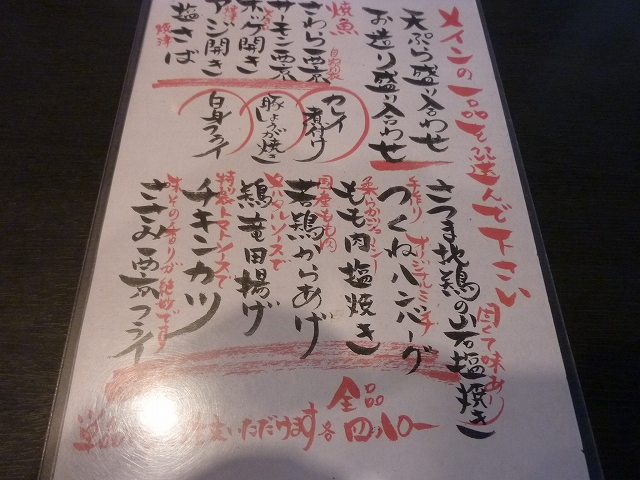 メインの一品を選んで下さい
天ぷら盛り合わせ
お造り盛り合わせ
焼魚
さわら西京
自家製
サーモン西京
ホッケ開き
アジ開き
塩さば
焼津
カレイ煮付け
豚しょうが焼き
白身フライ
さつま地鶏の岩塩焼き
固くて味あり
つくねハンバーグ
手作り オリジナルミンチ
もも肉塩焼き
柔らかジューシー
若鶏からあげ
国産もも肉
鶏竜田揚げ
タルタルソースで
チキンカツ
特製トマトソースで
ささみ西京フライ
味その香りが絶妙です
全品
いただけます 各